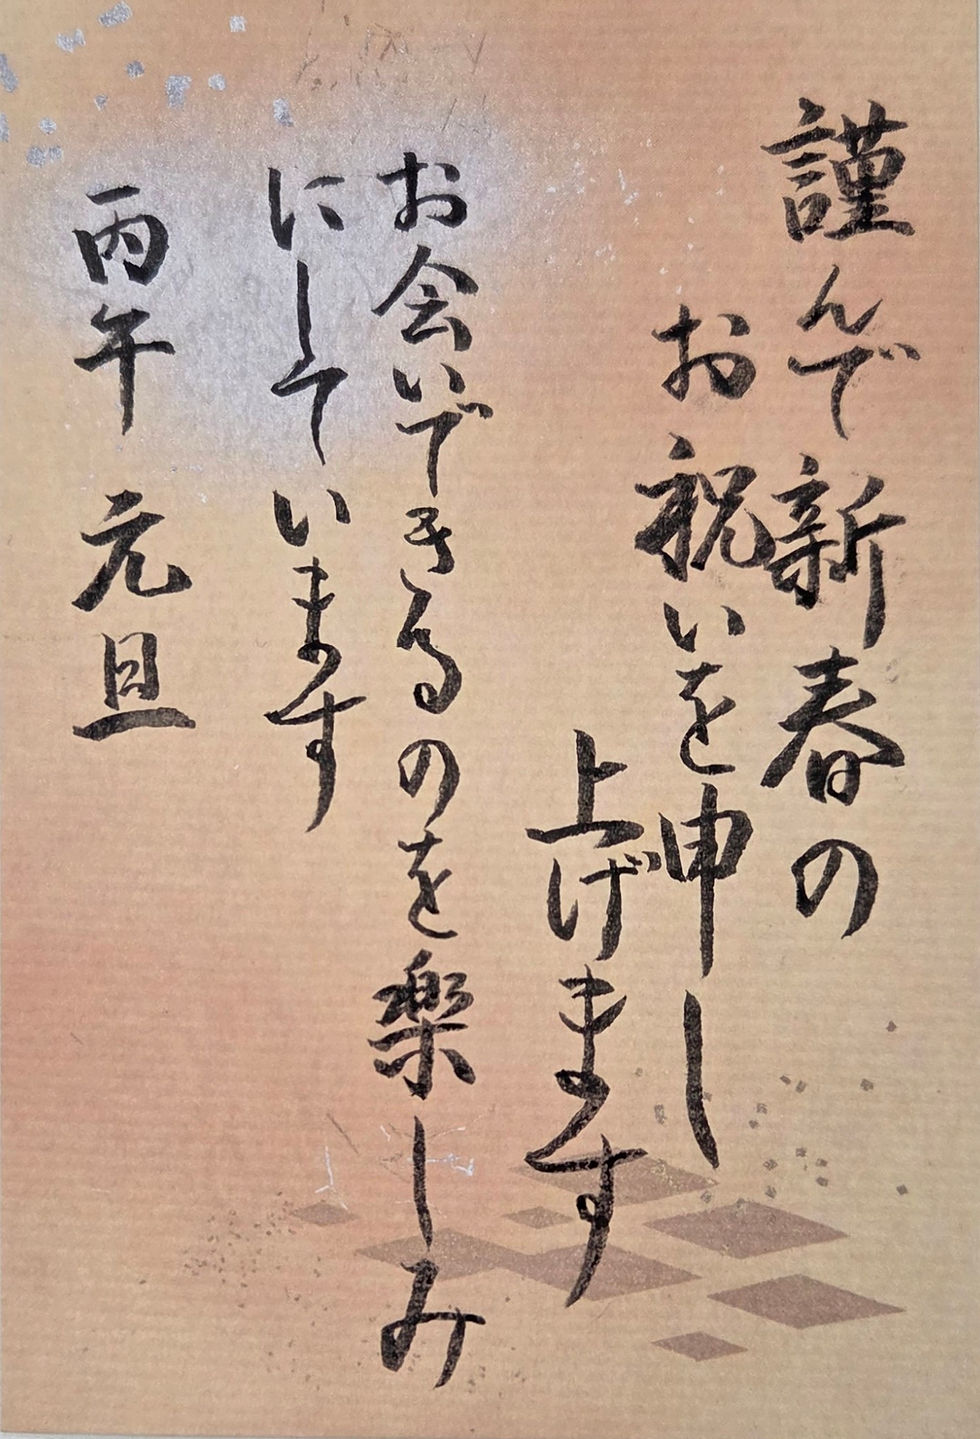 謹んで新春の
お祝いを申し
上げます
お会いできるのを楽しみ
にしています
丙午 元旦